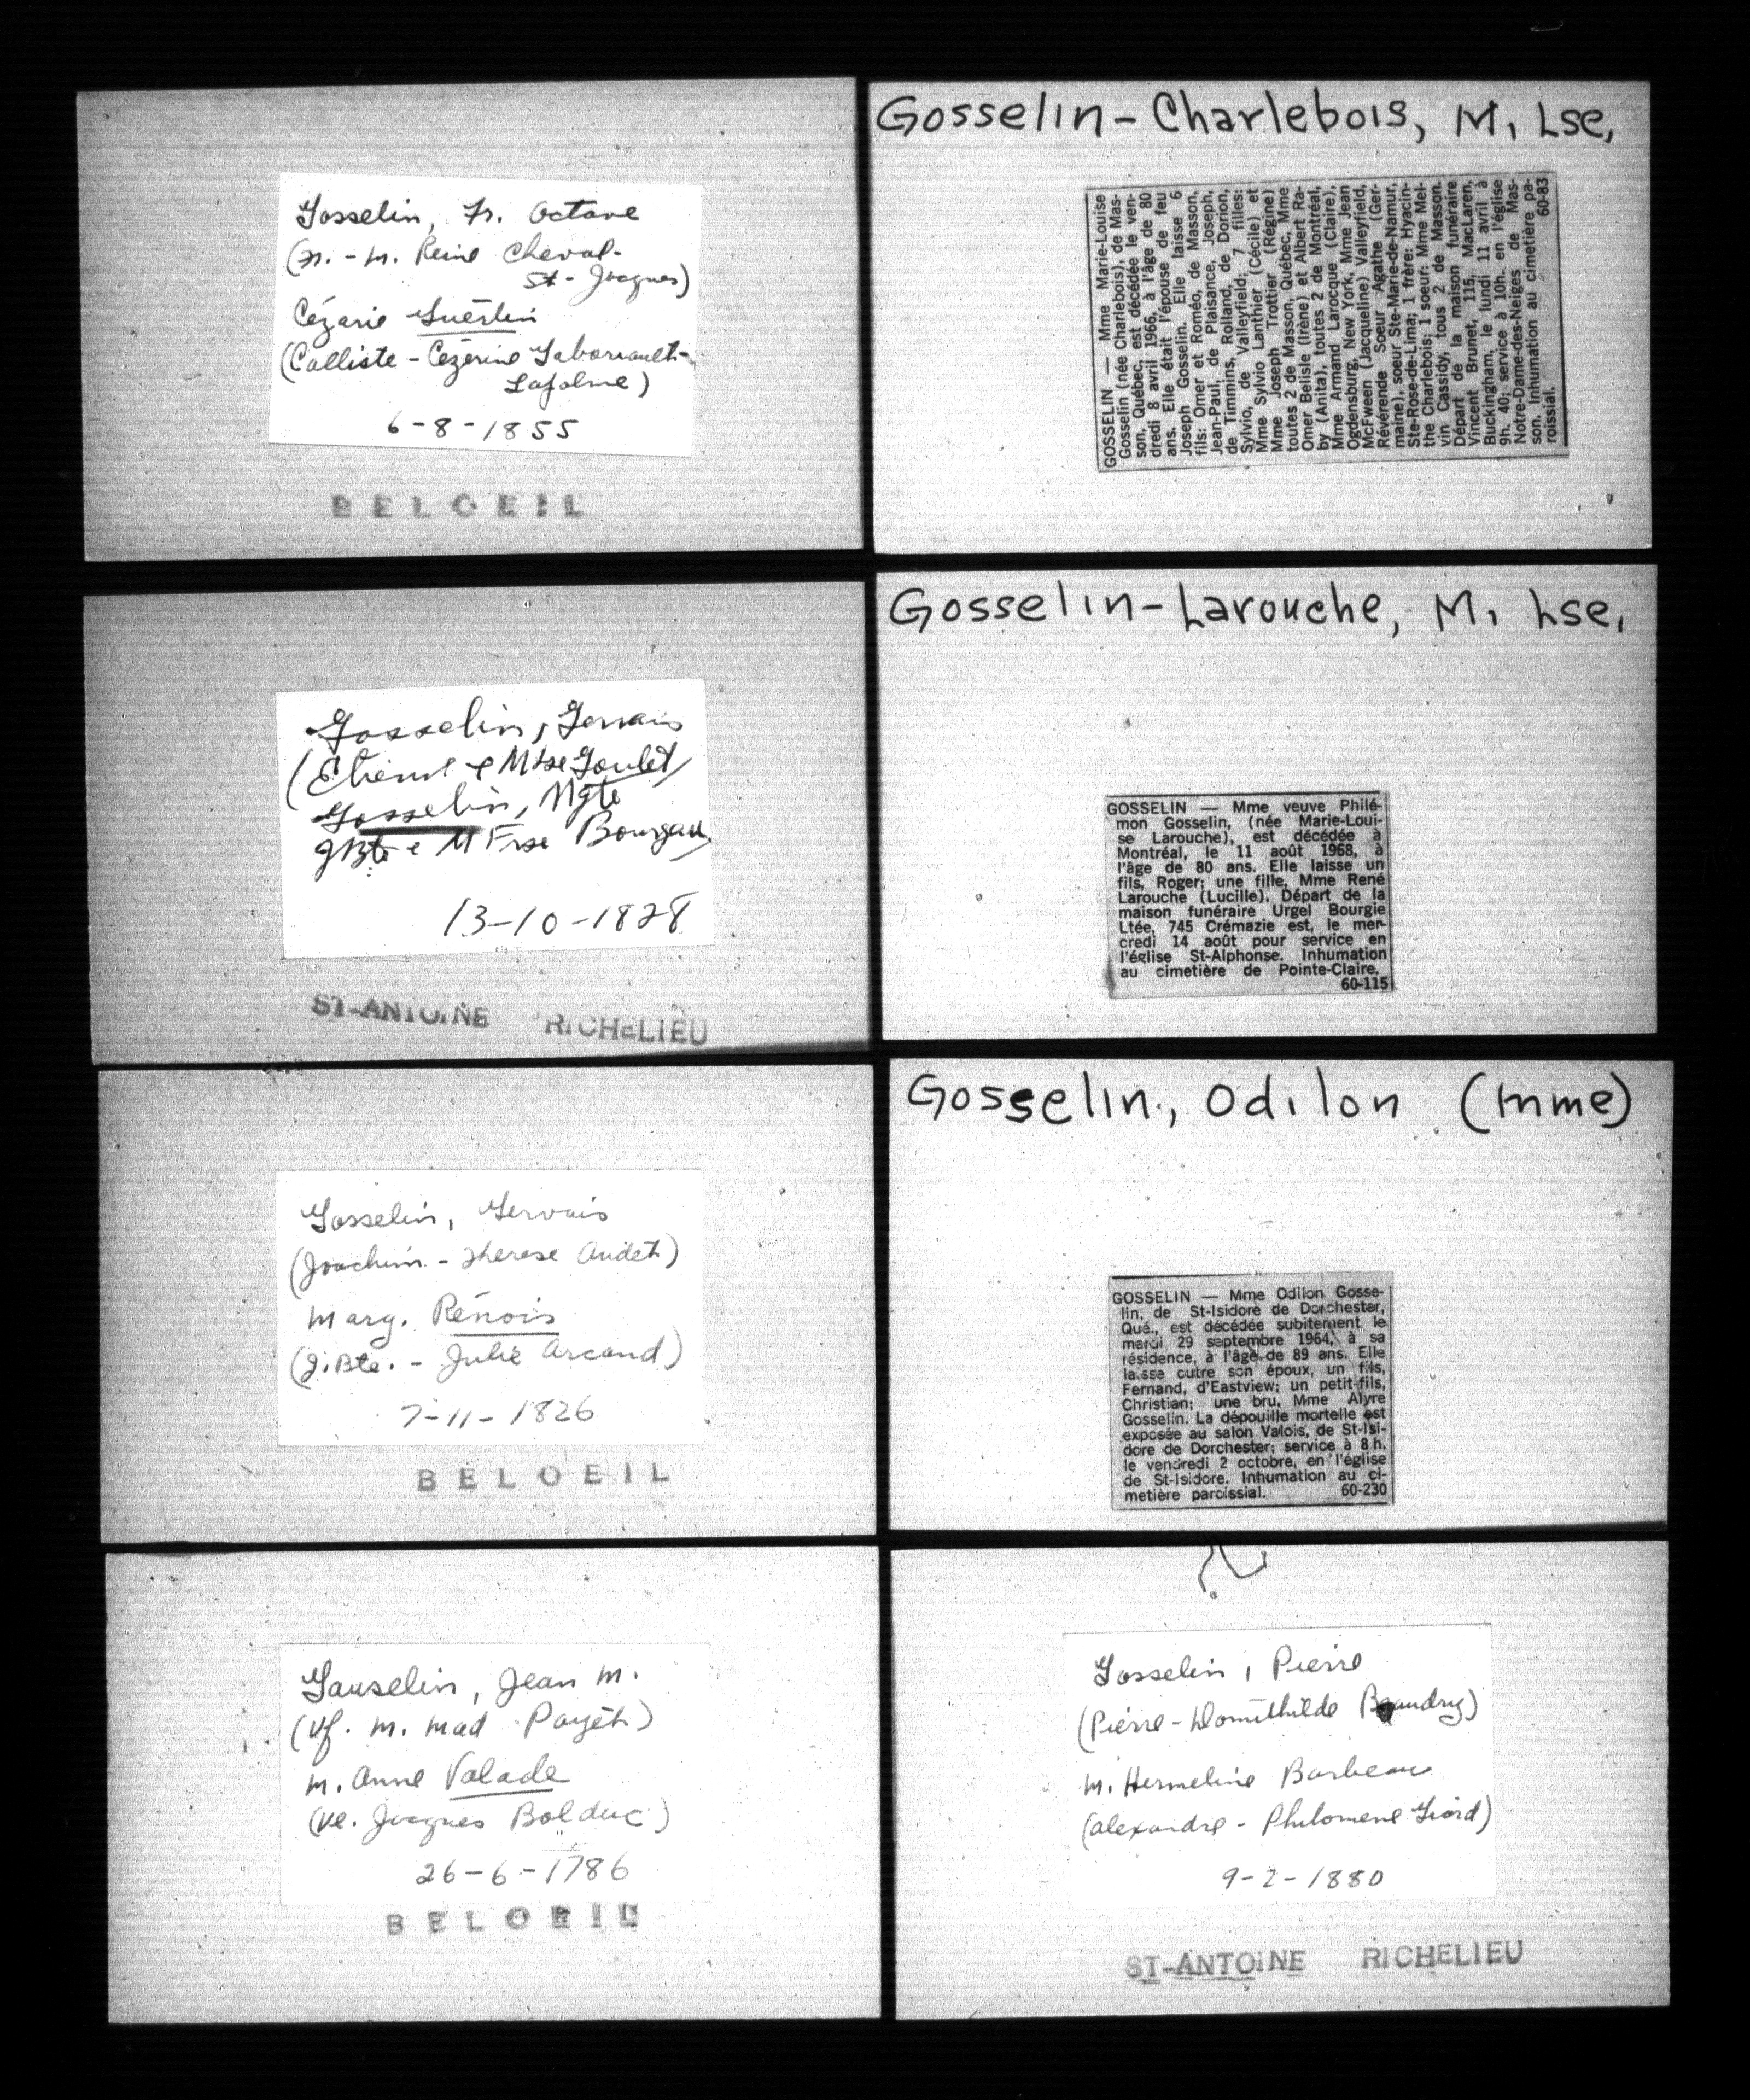 Gosselin, Fr. Octave
(Fr. - M. Reine Cheval-
St-Jacques)
Cézarie Guertin
(Calliste - Cézerine Jaborault-
Lafolme)
6-8-1855
BELOEIL
Gosselin, Gervais
(Etienne & M Lse Goulet)
Gosselin, Mgte
JBte & M Frse Bourgau
13-10-1828
ST-ANTOINE RICHELIEU
Gosselin, Gervais
(Joachim - Therese Audet)
Marg. Rénois
(J.Bte. - Julie Arcand)
7-11-1826
BELOEIL
Gauselin, Jean M.
(Vf. M. Mad Payét)
M. Anne Valade
(Ve. Jacques Bolduc)
26-6-1786
BELOEIL
Gosselin-Charlebois, M. Lse,
GOSSELIN — Mme Marie-Louise
Gosselin (née Charlebois), de Mas-
son, Québec, est décédée le ven-
dredi 8 avril 1966, à l'âge de 80
ans. Elle était l'épouse de feu
Joseph Gosselin. Elle laisse 6
fils: Omer et Roméo, de Masson,
Jean-Paul, de Plaisance, Joseph,
de Timmins, Rolland, de Dorion,
Sylvio, de Valleyfield; 7 filles:
Mme Sylvio Lanthier (Cécile) et
Mme Joseph Trottier (Régine)
toutes 2 de Masson, Québec, Mme
Omer Belisle (Irène) et Albert Ra-
by (Anita), toutes 2 de Montréal,
Mme Armand Larocque (Claire),
Ogdensburg, New York, Mme Jean
McFween (Jacqueline) Valleyfield,
Révérende Soeur Agathe (Ger-
maine), soeur Ste-Marie-de-Namur,
Ste-Rose-de-Lima; 1 frère: Hyacin-
the Charlebois; 1 soeur: Mme Mel-
vin Cassidy, tous 2 de Masson.
Départ de la maison funéraire
Vincent Brunet, 115, MacLaren,
Buckingham, le lundi 11 avril à
9h. 40; service à 10h. en l'église
Notre-Dame-des-Neiges de Mas-
son. Inhumation au cimetière pa-
roissial. 60-83
Gosselin-Larouche, M. Lse,
GOSSELIN — Mme veuve Philé-
mon Gosselin, (née Marie-Loui-
se Larouche), est décédée à
Montréal, le 11 août 1968, à
l'âge de 80 ans. Elle laisse un
fils, Roger; une fille, Mme René
Larouche (Lucille). Départ de la
maison funéraire Urgel Bourgie
Ltée, 745 Crémazie est, le mer-
credi 14 août pour service en
l'église St-Alphonse. Inhumation
au cimetière de Pointe-Claire.
60-115
Gosselin, Odilon (mme)
GOSSELIN — Mme Odilon Gosse-
lin, de St-Isidore de Dorchester,
Qué., est décédée subitement le
mardi 29 septembre 1964, à sa
résidence, à l'âge de 89 ans. Elle
laisse outre son époux, un fils,
Fernand, d'Eastview; un petit-fils,
Christian; une bru, Mme Alyre
Gosselin. La dépouille mortelle est
exposée au salon Valois, de St-Isi-
dore de Dorchester; service à 8 h.
le vendredi 2 octobre, en l'église
de St-Isidore. Inhumation au ci-
metière paroissial. 60-230
Gosselin, Pierre
(Pierre - Domithilde Beaudry)
M. Hermeline Barbeau
(Alexandre - Philomene Giard)
9-2-1880
ST-ANTOINE RICHELIEU